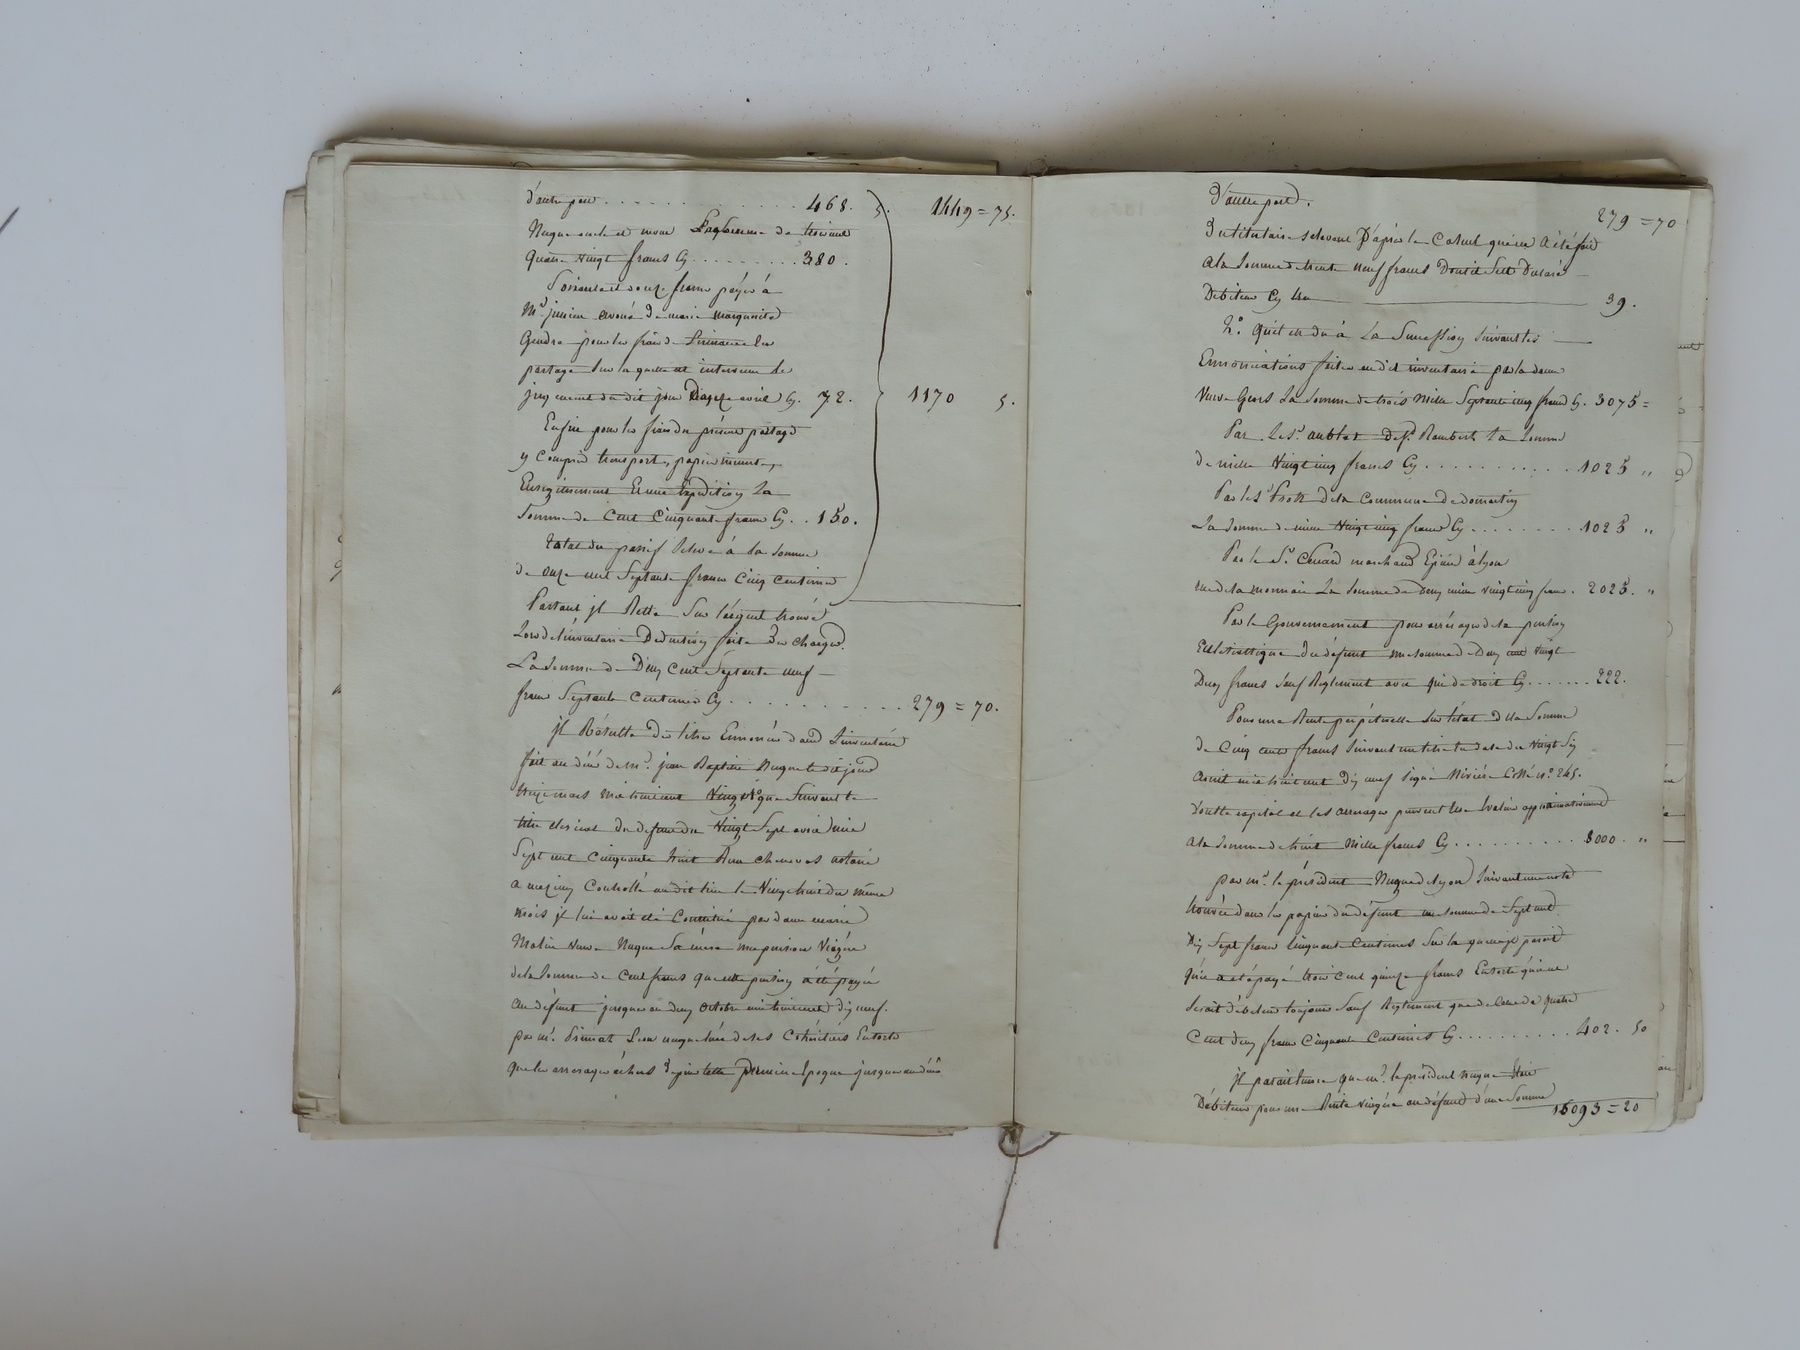 d'autre part . . . . . . . . . . . . . 468. 5. 1449 = 75.
Nuque oncle et mour La somme de trois cent
quatre vingt francs Cy . . . . . . . . 380.
Soixante et douze francs payés à
Mr. avoué de marie marguerite
pour les frais de l'instance en
partage sur laquelle est intervenu le
jugement du dit jour avril Cy. 72. 1170 5.
Enfin pour les frais du présent partage
y Compris transport, papier minute,
Enregistrement Et une Expédition La
Somme de Cent Cinquante francs Cy . . 150.
total du passif Relevé à la somme
de onze cent Septante francs Cinq Centimes
Partant il Reste Sur l'argent trouvé
Lors de l'inventaire Déduction faite des charges
La Somme de Deux Cent Septante neuf
francs Septante Centimes Cy . . . . . . . . . . . 279 = 70.
il Résulte des titres Enoncés dans L'inventaire
fait au décès de Mr. jean Baptiste Nuque le dit jour
treize mars mil huit cent Vingt que Suivant le
titre clérical du défunt du Vingt Sept avril mil
Sept cent Cinquante huit Reçu notaire
a Controllé au dit lieu le Vingt huit du même
mois il lui avait été Constitué par dame marie
Molin veuve Nuque Sa mère une pension Viagère
de la Somme de Cent francs que cette pension a été payée
au défunt jusques au deux octobre mil huit cent dix neuf.
par Mr. L'un de Ses Cohéritiers En sorte
que les arrerages échus Depuis cette Dernière Epoque jusques au décès
D'autre part. 279 = 70
D'après le Calcul qui en a été fait
a la Somme de trente neuf francs Dont il Sera
Débiteur Cy 39.
2°. Qu'il est du à La Succession Suivant les
Enonciations faites au dit inventaire par la dame
Veuve La Somme de trois Mille Septante cinq francs Cy. 3075 =
Par Le Sr. Rambert La Somme
de mille Vingt cinq francs Cy . . . . . . . . . . . 1025 "
Par le Sr. de la Commune de
La Somme de mille Vingt cinq francs Cy . . . . . . . . 1025 "
Par le Sr. marchand Epicier à Lyon
rue de la monnaie La Somme de deux mille vingt cinq francs . 2025. "
Par le Gouvernement pour arrérages de la pension
Ecclésiastique du défunt une Somme de Deux cent Vingt
Deux francs Sauf Règlement avec qui de droit Cy . . . . . . . 222.
Pour une Rente perpétuelle Sur l'état de la Somme
de Cinq cents francs Suivant un titre en date du Vingt Six
août mil huit cent dix neuf Signé Côté n°. 245.
Dont le capital et les arrerages peuvent Se approximativement
a la Somme de huit Mille francs Cy . . . . . . . . . . 8000. "
par mr. le président Nuque de Lyon Suivant une note
trouvée dans les papiers du défunt une Somme de Sept cent
Dix Sept francs Cinquante Centimes Sur laquelle il paroit
qu'il a été payé trois Cent quinze francs En sorte qu'il ne
Serait débiteur toujours Sauf Règlement que de celle de quatre
Cent deux francs Cinquante Centimes Cy . . . . . . . . . . 402. 50
il parait que mr. le président Nuque était
Débiteur pour une Rente viagère au défunt d'une Somme
16093 = 20